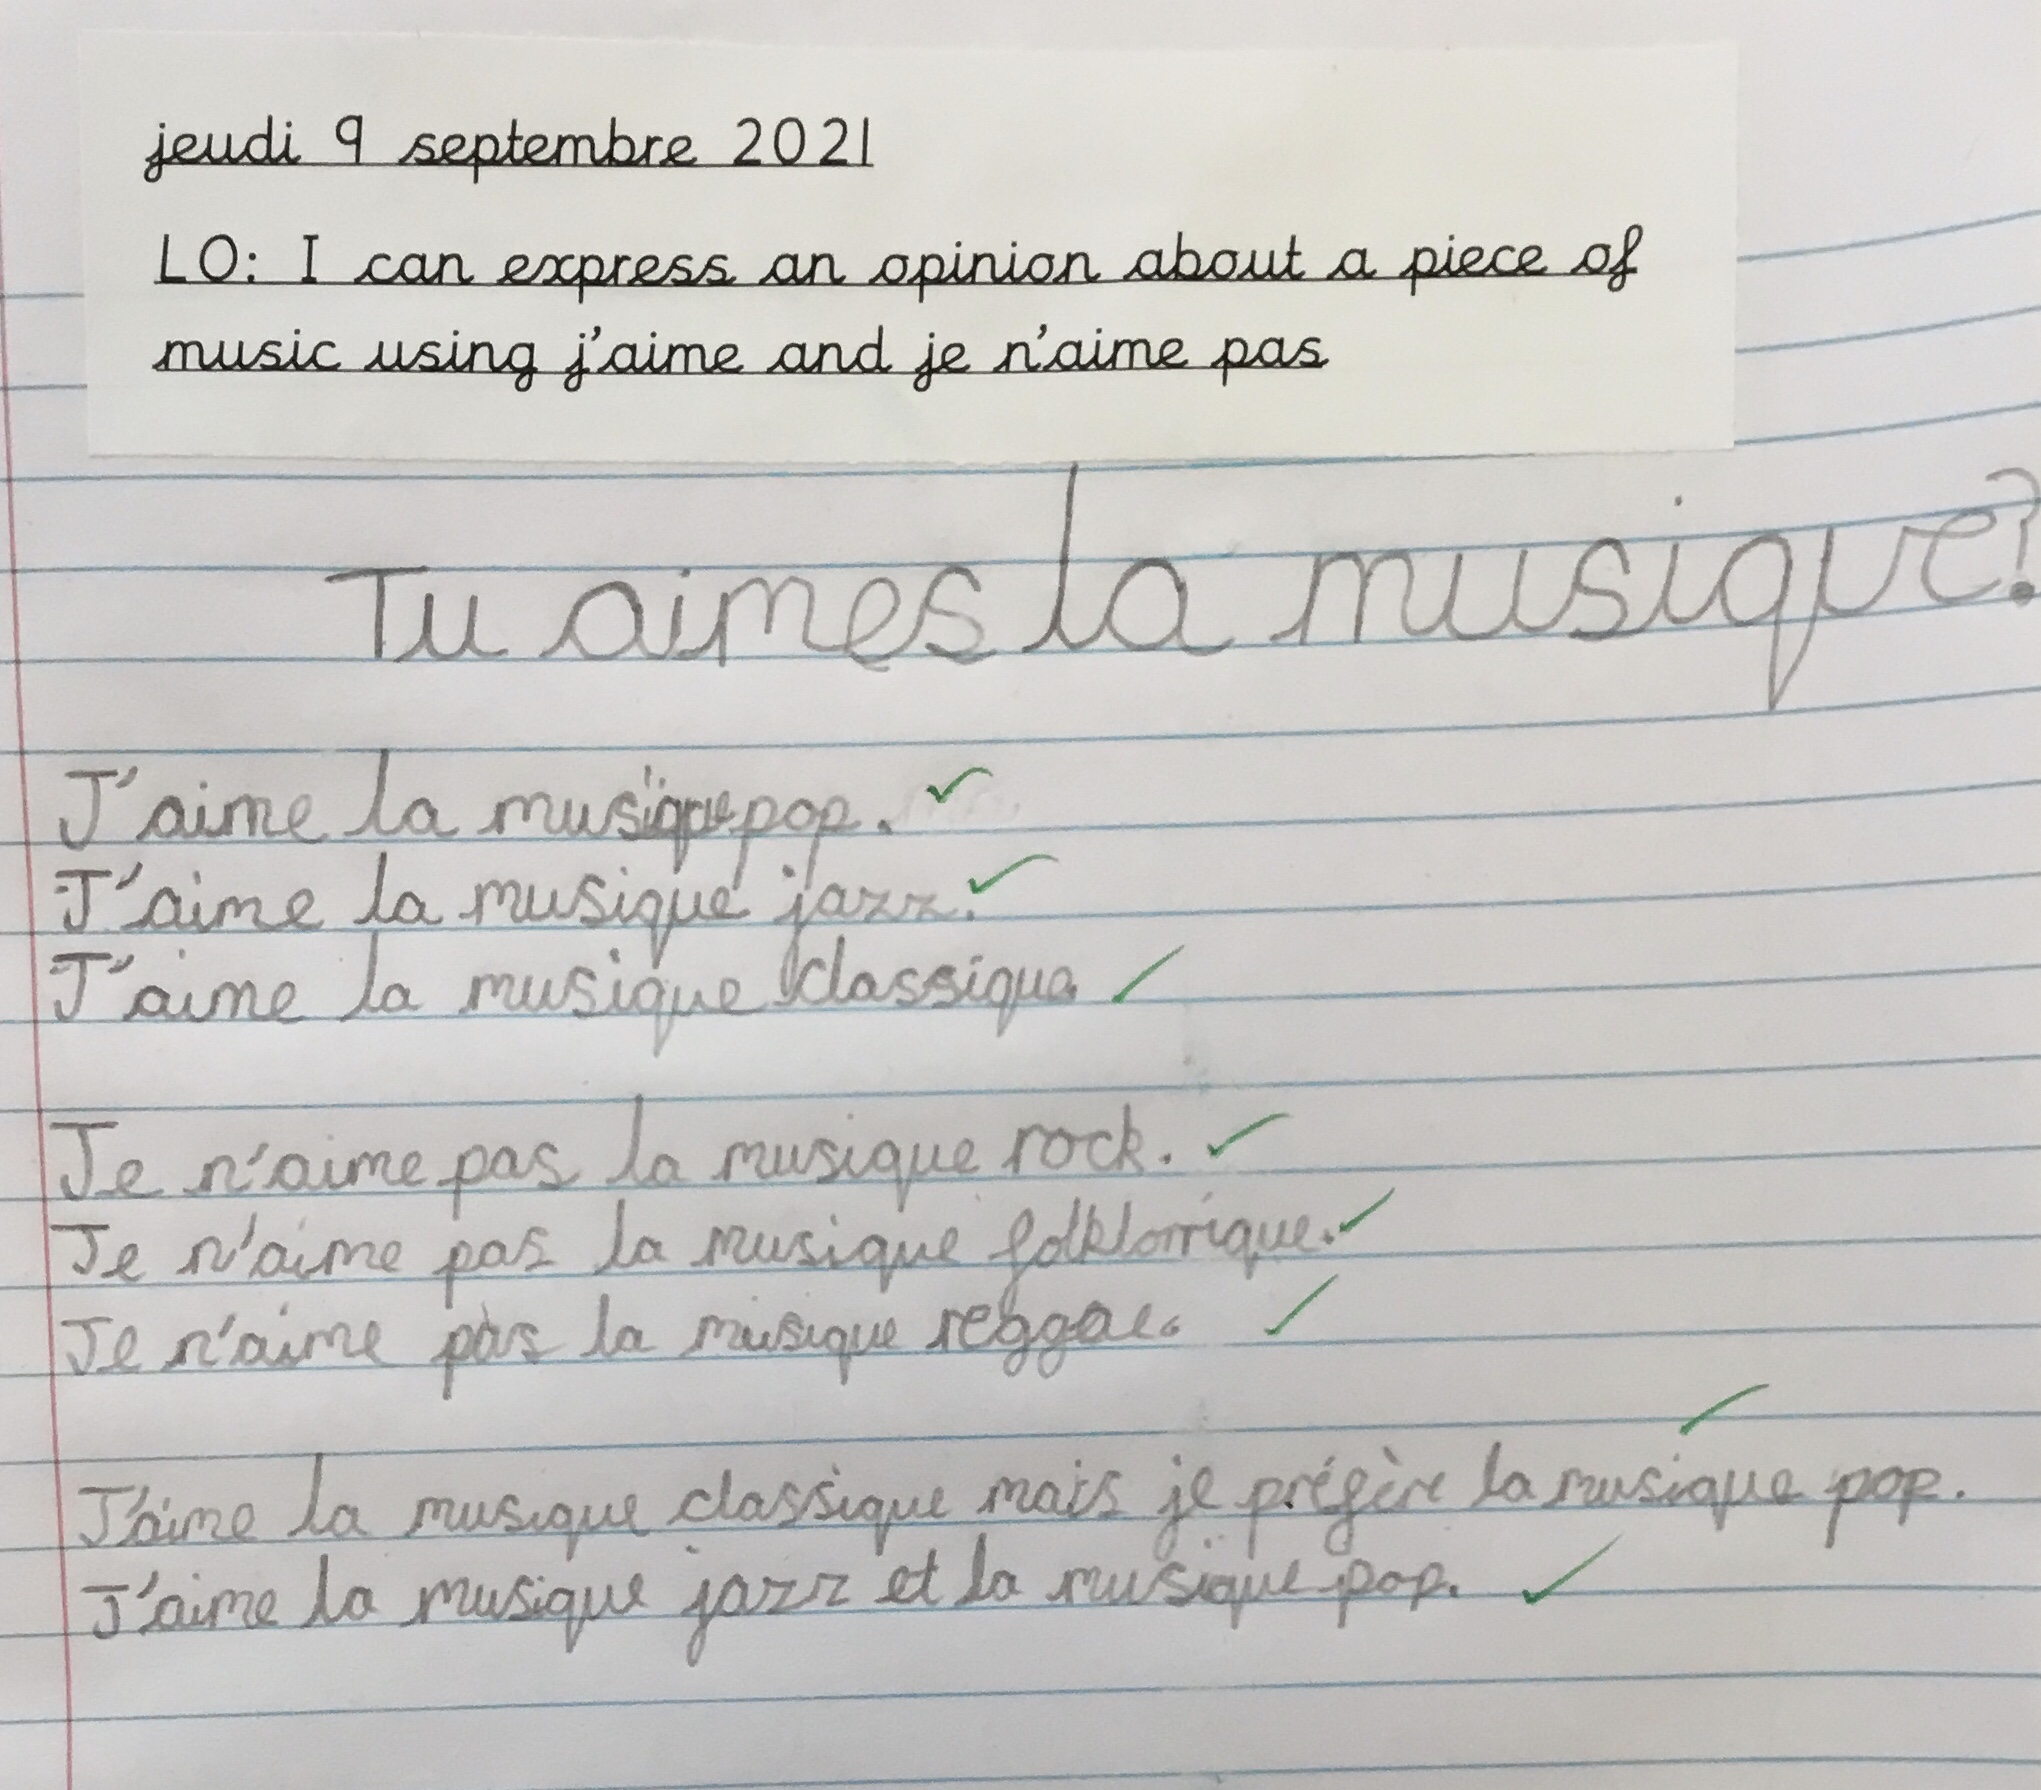 jeudi 9 septembre 2021
LO: I can express an opinion about a piece of
music using j'aime and je n'aime pas
Tu aimes la musique?
J'aime la musique pop.
J'aime la musique jazz.
J'aime la musique classique.
Je n'aime pas la musique rock.
Je n'aime pas la musique folklorrique.
Je n'aime pas la musique reggae.
J'aime la musique classique mais je préfère la musique pop.
J'aime la musique jazz et la musique pop.